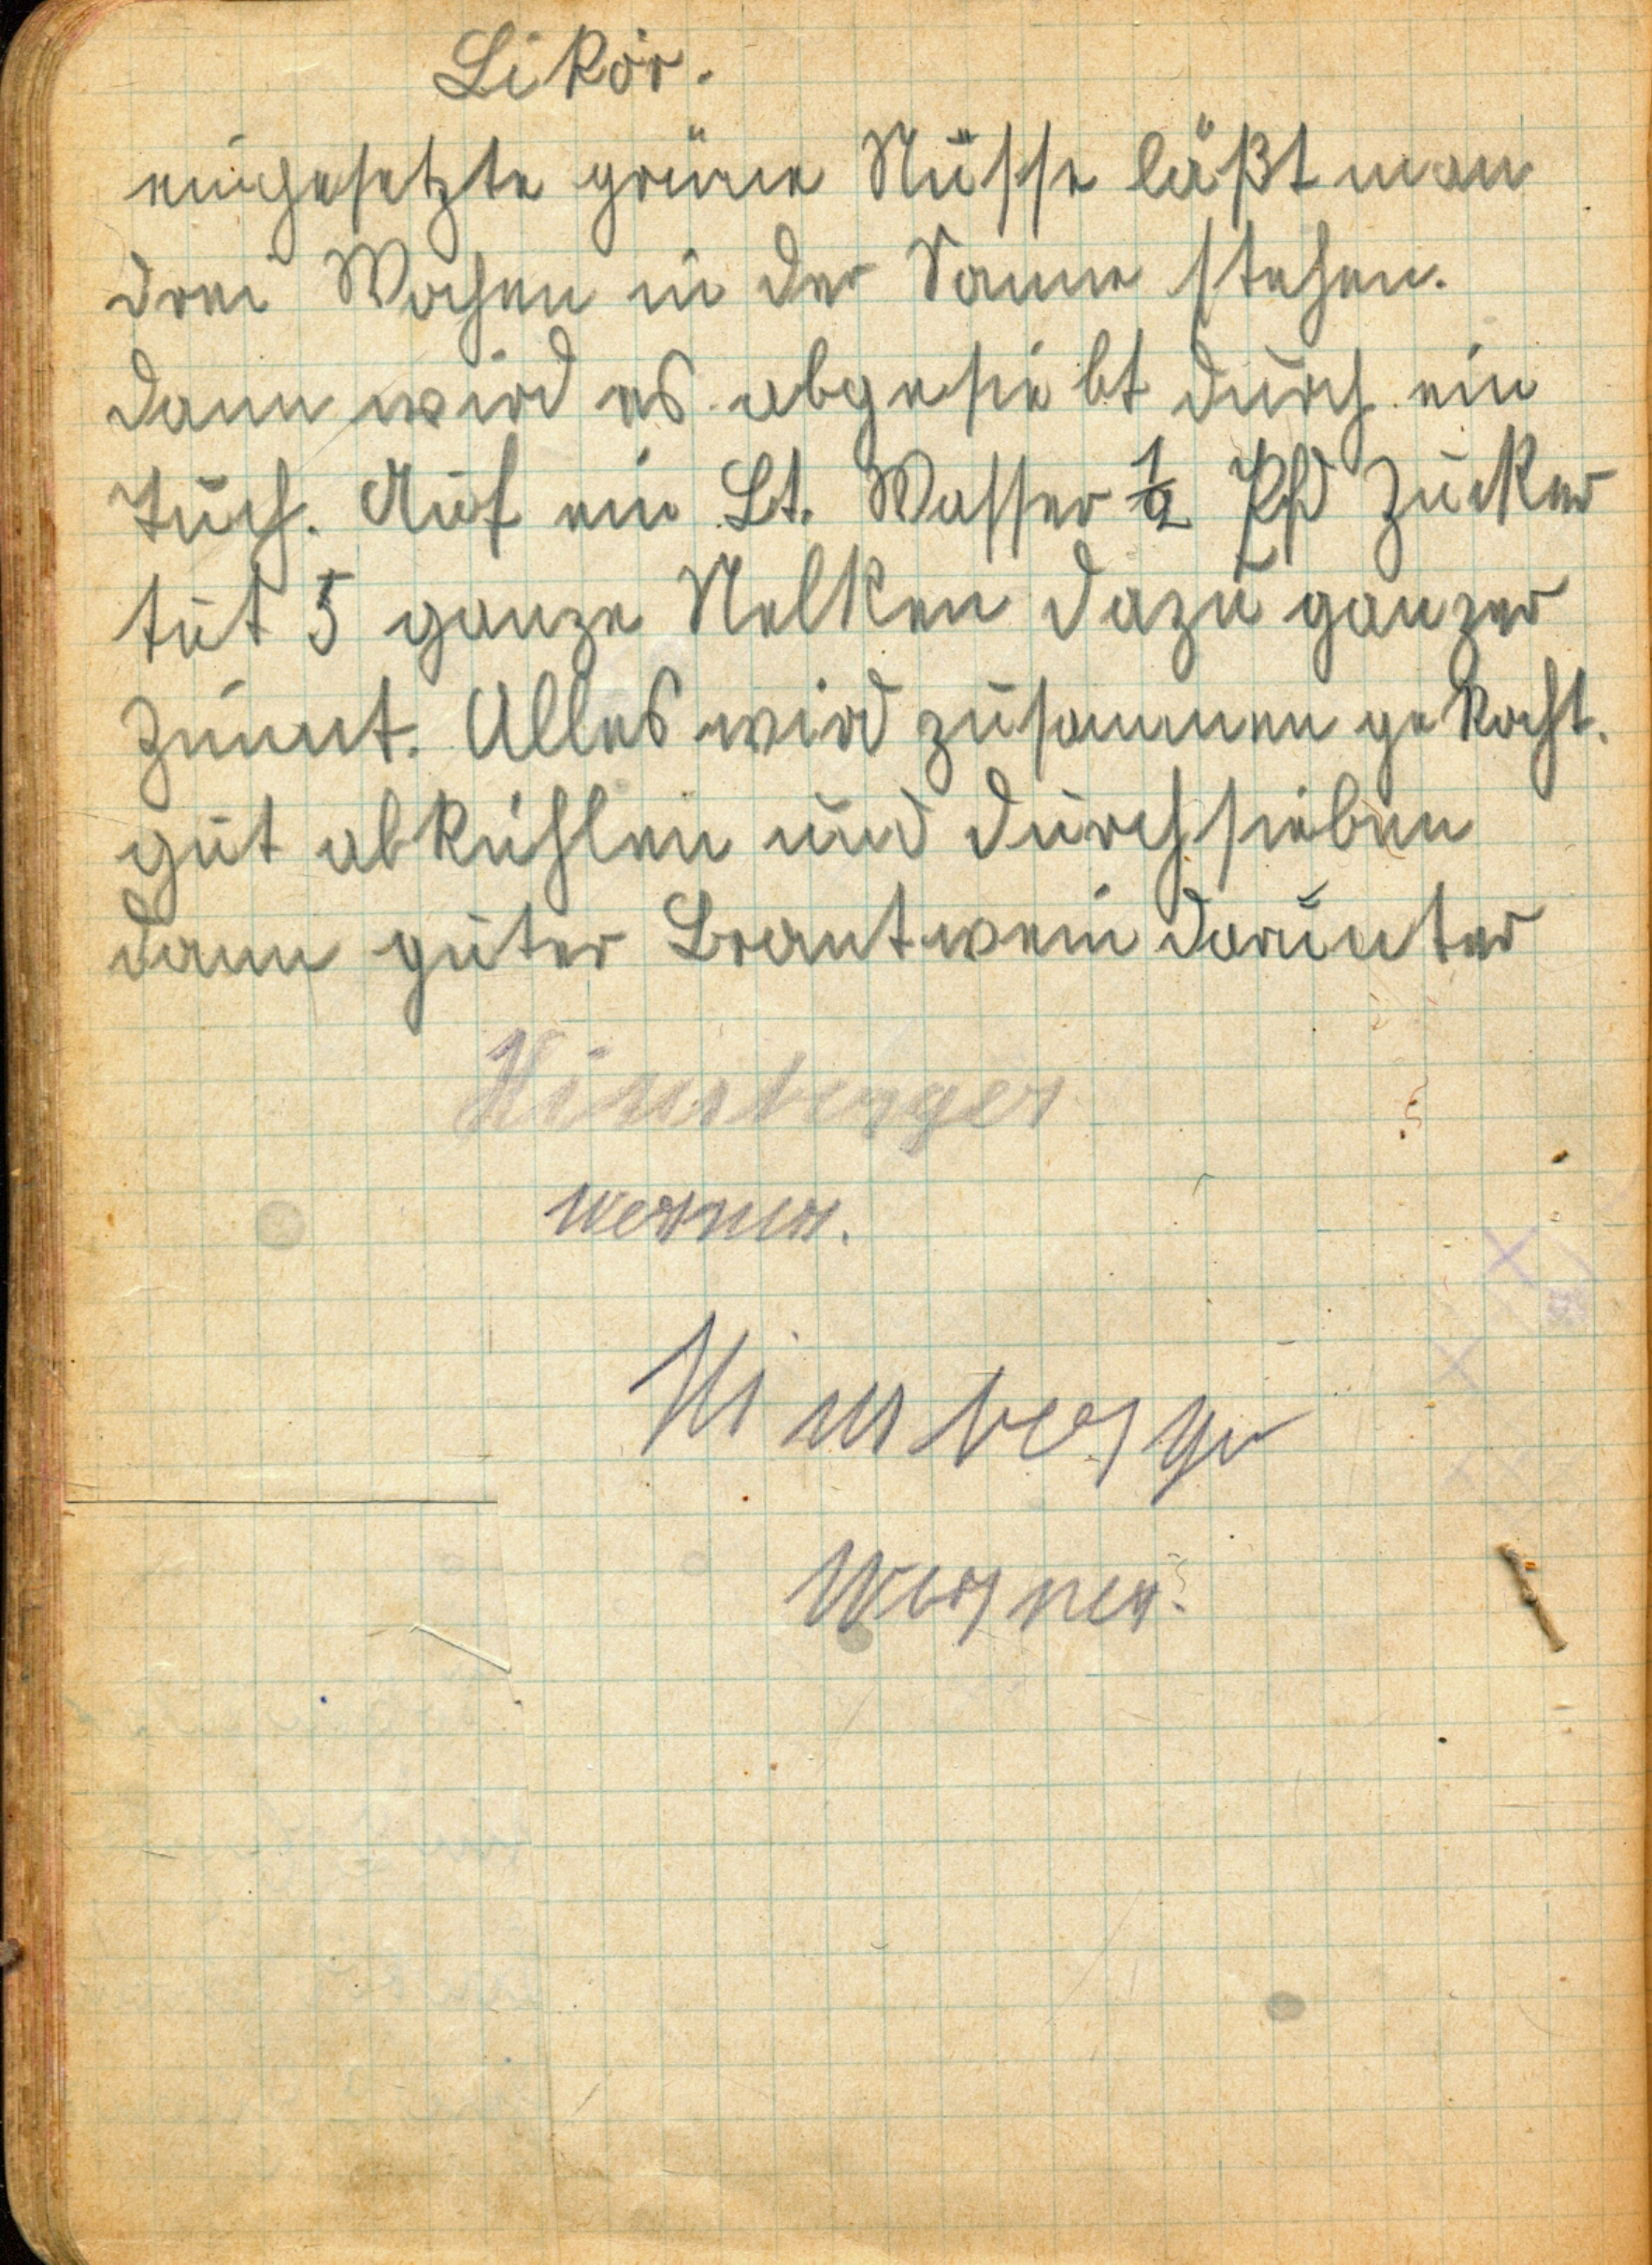 Likör.
eingesetzte grüne Nüsse läßt man
drei Wochen in der Sonne stehen.
dann wird es abgesiebt durch ein
Tuch. Auf ein Lt. Wasser ½ Pfd Zucker
tut 5 ganze Nelken dazu ganzer
Zimmt. Alles wird zusammen gekocht.
gut abkühlen und durchsieben
dann guter Brantwein darunter
Werner.
Werner.